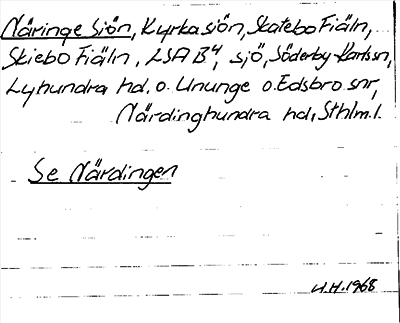 Näringe Sjön, Kyrkasjön, Skatebo Fiäln,
Skiebo Fiäln, LSA B4, sjö, Söderby-Karls sn,
Lyhundra hd. o. Ununge o. Edsbro snr,
Närdinghundra hd, Sthlm.l.
Se Närdingen
U.H. 1968